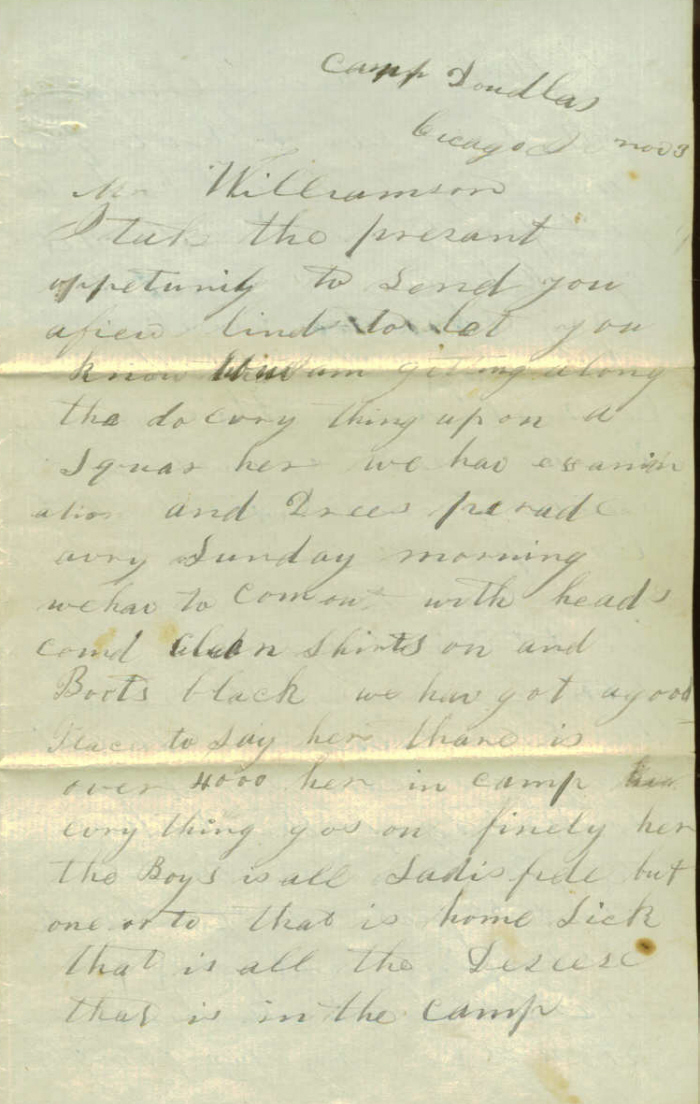 Camp Doudlas
Cicago Nov 3
Mr Williamson
I tak the presant
oppetunity to Send you
a fiew lind to let you
know how am geting along
tha do evry thing upon a
Squar her we hav exsamin
ation and Drees perade
avry Sunday morning
we hav to Com out with heads
comd Clean Shirts on and
Boots black we hav got a good
Place to Say her thare is
over 4000 her in camp
evry thing gos on finely her
the Boys is all Sadisfide but
one or to that is home Sick
that is all the Desese
that is in the Camp